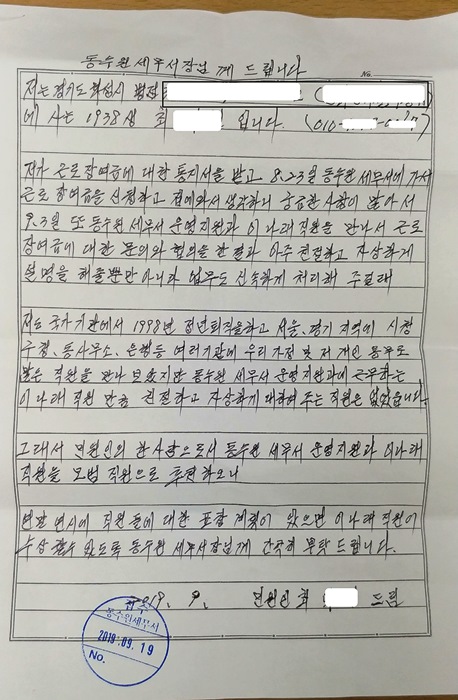 동수원 세무서장님 께 드립니다
No.
저는 경기도 화성시 병점
에 사는 1938생 최 입니다. (010-
제가 근로장여금에 대한 통지서를 받고 8.23일 동수원 세무서에 가서
근로 장여금을 신청하고 집에와서 생각하니 궁금한 사항이 많아서
9.3일 또 동수원 세무서 운영지원과 이나래 직원을 만나서 근로
장여금에 대한 문의와 협의를 한 결과 아주 친절하고 자상하게
설명을 해줄뿐만 아니라 업무도 신속하게 처리해 주길래
저는 국가기관에서 1998년 정년퇴직을하고 서울, 경기 지역에 시청
구청, 동사무소, 은행등 여러기관에 우리가정 및 저 개인 용무로
많은 직원을 만나 보았지만 동수원 세무서 운영지원과에 근무하는
이나래 직원 만큼 친절하고 자상하게 대하여 주는 직원은 없었습니다.
그래서 민원인의 한사람으로서 동수원 세무서 운영지원과 이나래
직원을 모범 직원으로 추천하오니
연말 연시에 직원들에 대한 포창 계획이 있으면 이나래 직원이
수상할수 있도록 동수원 세무서장님께 간곡히 부탁 드립니다.
2019. 9. 민원인 최 드림
접수
동수원세무서
2019.09.19
No.